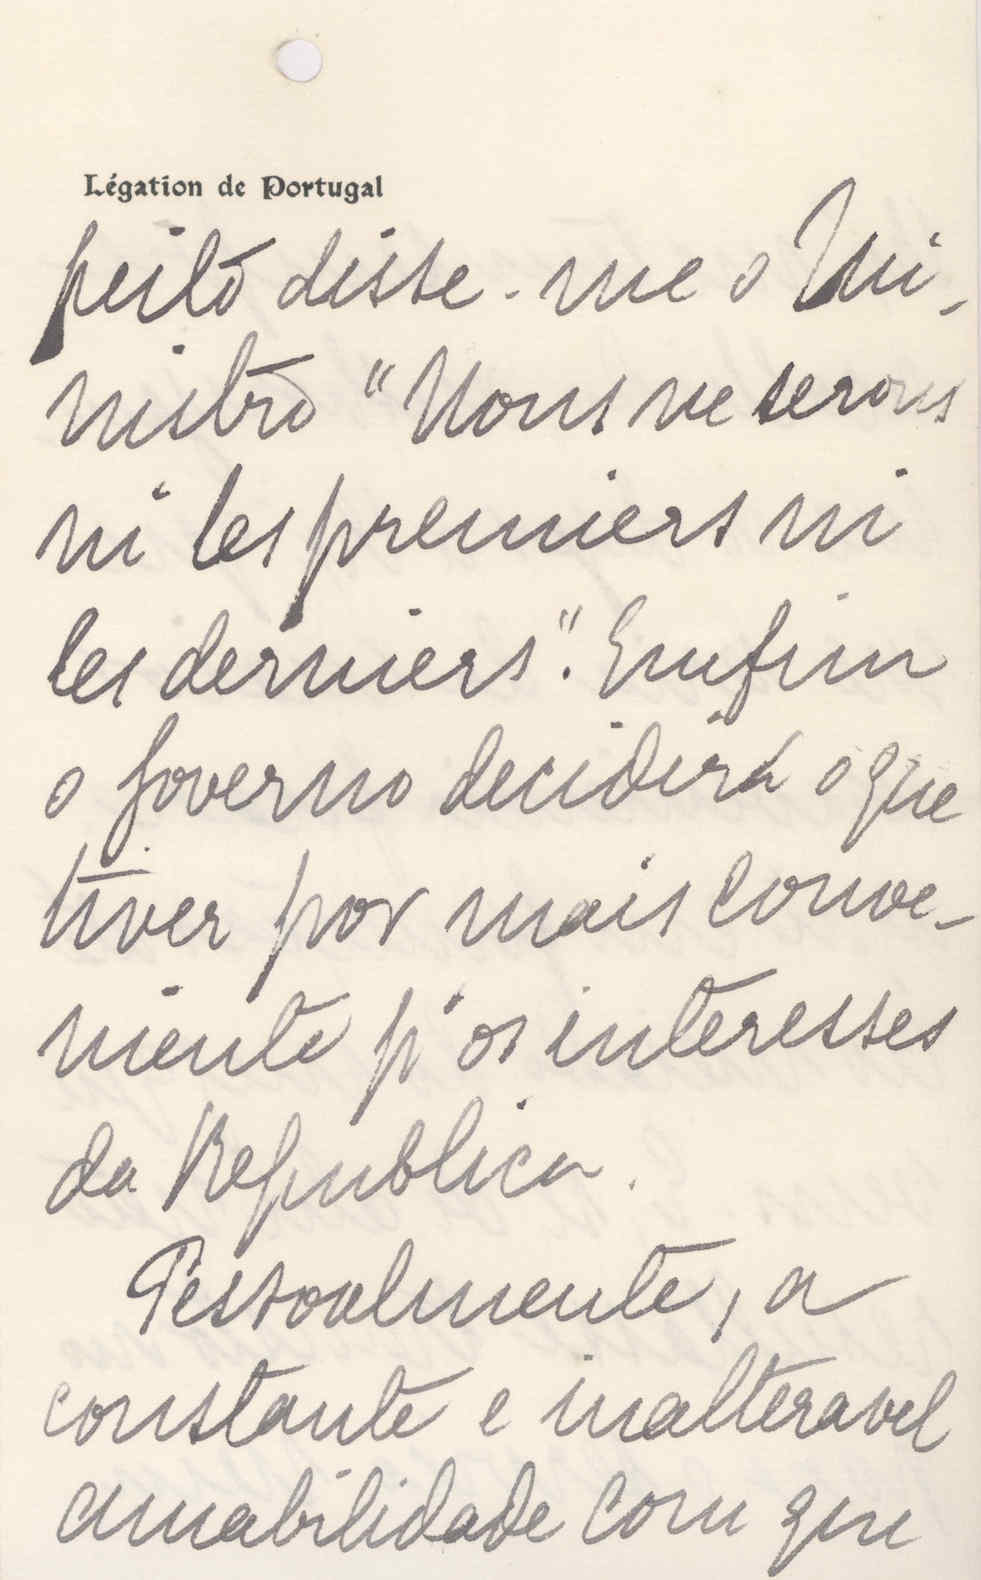 Légation de Portugal
peito disse-me o Mi-
nistro "Nous ne serons
ni les premiers ni
les derniers". Emfim
o Governo decidirá o que
tiver por mais conve-
niente p' os interesses
da Republica.
Pessoalmente, a
constante e inalteravel
amabilidade com que